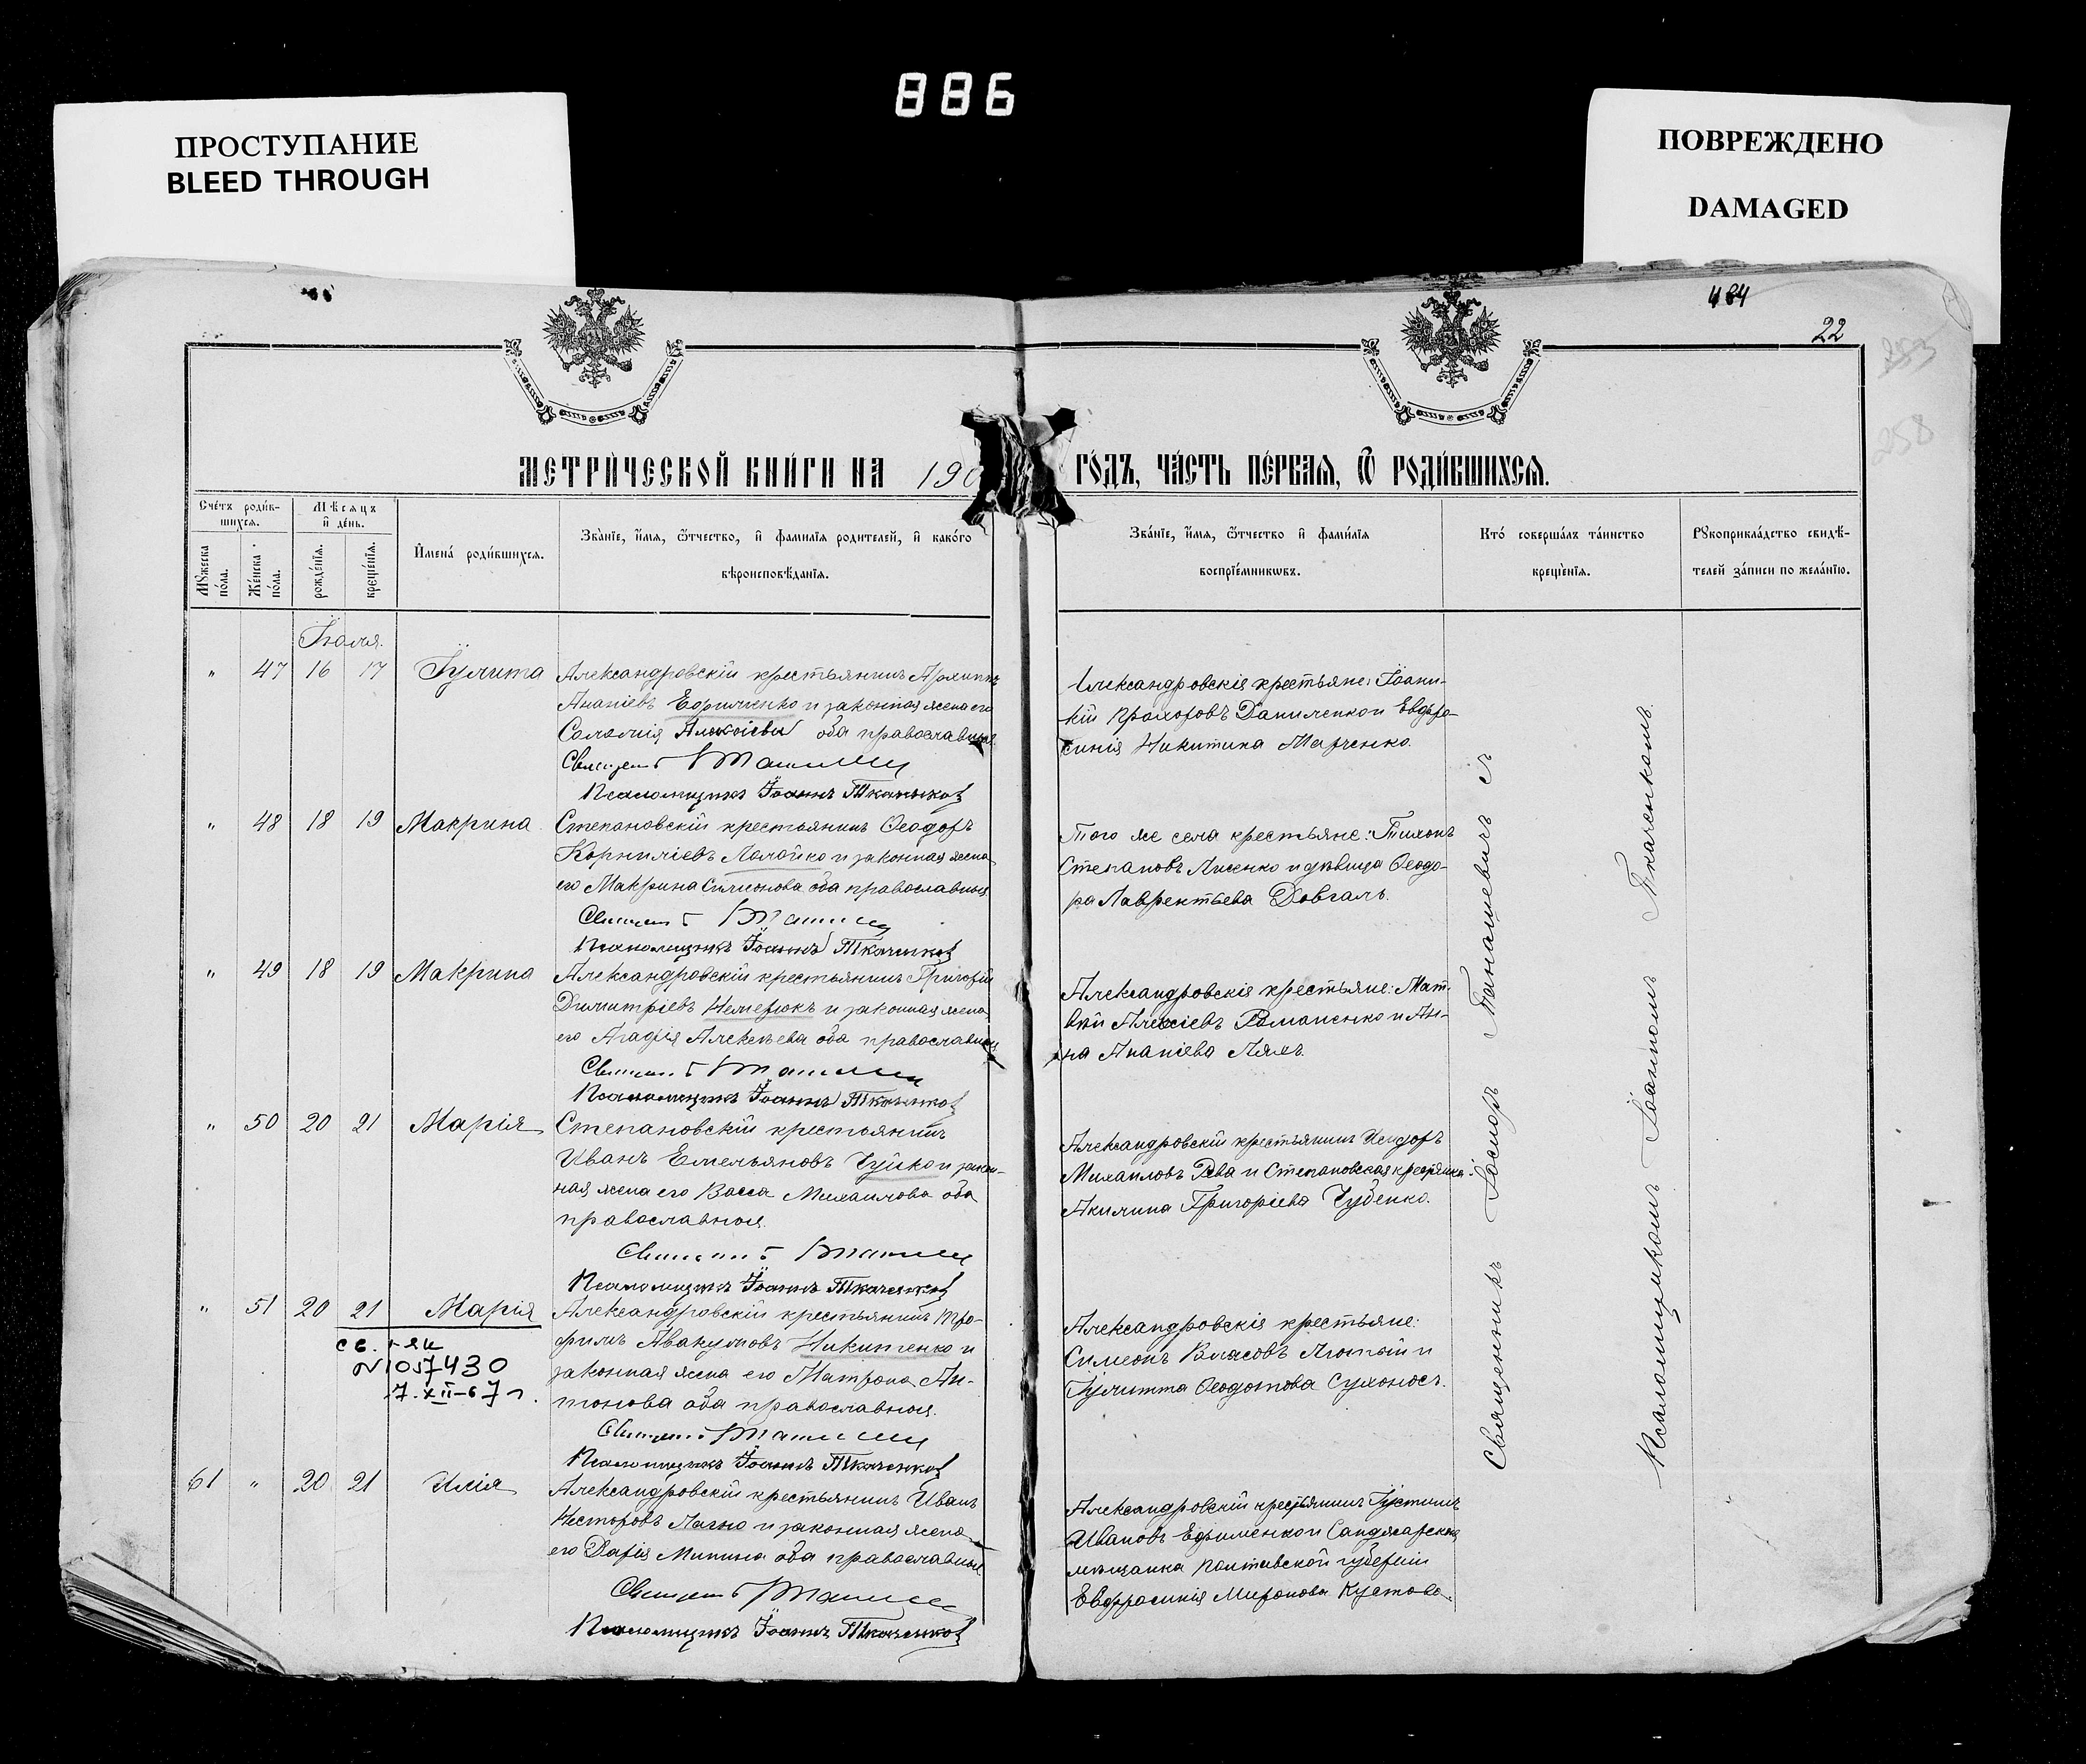 886
ПРОСТУПАНИЕ
BLEED THROUGH
ПОВРЕЖДЕНО
DAMAGED
484
22
253
258
МЕТРИ́ЧЕСКОЙ КНИ́ГИ НА 190
ГО́ДЪ, ЧА́СТЬ ПЕ́РВАЯ, Ѿ РОДИ́ВШИХСЯ.
Сче́тъ роди́в-
шихся.
Мѣсяцъ
и де́нь.
Мꙋжеска по́ла.
Же́нска по́ла.
рожде́нїя.
креще́нїя.
Имена́ роди́вшихся.
Зва́нїе, и́мя, ѿтчество, и фами́лїя родителей, и како́го
вѣроисповѣ́данїя.
Зва́нїе, и́мя, ѿтчество и фами́лїя
воспрїе́мникѡвъ.
Кто́ соверша́лъ та́инство
креще́нїя.
Рꙋкоприкла́дство свидѣ́-
телей за́писи по жела́нїю.
Іюля.
" 47 16 17 Іулита
Александровскій крестьянинъ Архиппъ
Ананіевъ Ефименко и законная жена его
Саломія Алексіева оба православныя.
Священ
Псаломщикъ Іоаннъ Ткаченковъ
Александровскія крестьяне: Іоанни-
кій Прохоровъ Даниленко и Евфро-
синія Никитина Марченко.
" 48 18 19 Макрина
Степановскій крестьянинъ Ѳеодоръ
Корниліевъ Лолойко и законная жена
его Макрина Симеонова оба православныя
Священ
Псаломщикъ Іоаннъ Ткаченковъ
Того же села крестьяне: Тихонъ
Степановъ Лисенко и дѣвица Ѳеодо-
ра Лаврентьева Довгаль.
" 49 18 19 Макрина
Александровскій крестьянинъ Григорій
Димитріевъ Немерюкъ и законная жена
его Агафія Алексѣева оба православныя
Священ
Псаломщикъ Іоаннъ Ткаченковъ
Александровскія крестьяне: Мат-
вѣй Алексіевъ Романенко и Ан-
на Ананіева Ляхъ.
" 50 20 21 Марія
Степановскій крестьянинъ
Иванъ Емельяновъ Чуйко и закон-
ная жена его Васса Михаилова оба
православныя.
Священ
Псаломщикъ Іоаннъ Ткаченковъ
Александровскій крестьянинъ Исидоръ
Михаиловъ Рева и Степановская крестьянка
Акилина Григоріева Чубенко.
" 51 20 21 Марія
св. I-ЯК
N 1057430
7.XII-67 г.
Александровскій крестьянинъ Тро-
фимъ Авакумовъ Никитенко и
законная жена его Матрона Ан-
тонова оба православныя.
Священ
Псаломщикъ Іоаннъ Ткаченковъ
Александровскія крестьяне:
Симеонъ Власовъ Лютый и
Іулитта Ѳеодотова Сухоносъ.
61 " 20 21 Илія
Александровскій крестьянинъ Иванъ
Несторовъ Лагно и законная жена
его Дарія Минина оба православныя
Священ
Псаломщикъ Іоаннъ Ткаченковъ
Александровскій крестьянинъ Іустинъ
Ивановъ Ефименко и Санджарская
мѣщанка Полтавской губерніи
Евфросинія Миронова Кустова.
Священникъ Іосифъ Танашевичъ съ
Псаломщикомъ Іоанномъ Ткаченкомъ.